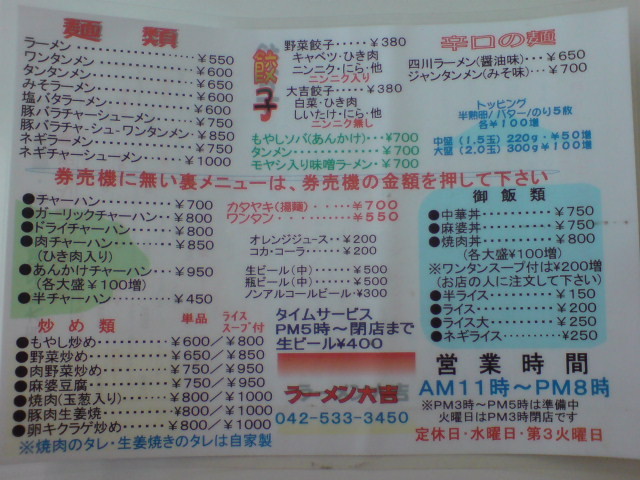 麺類
ラーメン ¥550
ワンタンメン ¥600
タンタンメン ¥650
みそラーメン ¥650
塩バタラーメン ¥600
豚バラチャーシューメン ¥800
豚バラチャ-シュ-ワンタンメン ¥850
ネギラーメン ¥750
ネギチャーシューメン ¥1000
餃子
野菜餃子 ¥380
キャベツ・ひき肉
ニンニク・にら・他
ニンニク入り
大吉餃子 ¥380
白菜・ひき肉
しいたけ・にら・他
ニンニク無し
もやしソバ(あんかけ) ¥700
タンメン ¥700
モヤシ入り味噌ラーメン ¥700
辛口の麺
四川ラーメン(醤油味) ¥650
ジャンタンメン(みそ味) ¥700
トッピング
半熟卵/バター/のり5枚
各¥100増
中盛(1.5玉)220g ¥50増
大盛(2.0玉)300g ¥100増
券売機に無い裏メニューは、券売機の金額を押して下さい
●チャーハン ¥700
●ガーリックチャーハン ¥800
●ドライチャーハン ¥800
●肉チャーハン ¥850
(ひき肉入り)
●あんかけチャーハン ¥950
(各大盛¥100増)
●半チャーハン ¥450
カタヤキ(揚麺) ¥700
ワンタン ¥550
オレンジジュース ¥200
コカ・コーラ ¥200
生ビール(中) ¥500
瓶ビール(中) ¥500
ノンアルコールビール ¥300
タイムサービス
PM5時～閉店まで
生ビール¥400
御飯類
●中華丼 ¥750
●麻婆丼 ¥750
●焼肉丼 ¥800
(各大盛¥100増)
※ワンタンスープ付は¥200増
(お店の人に注文して下さい)
●半ライス ¥150
●ライス ¥200
●ライス大 ¥250
●ネギライス ¥250
炒め類 単品 ライススープ付
●もやし炒め ¥600/¥800
●野菜炒め ¥650/¥850
●肉野菜炒め ¥750/¥950
●麻婆豆腐 ¥750/¥950
●焼肉(玉葱入り) ¥800/¥1000
●豚肉生姜焼 ¥800/¥1000
●卵キクラゲ炒め ¥800/¥1000
※焼肉のタレ・生姜焼きのタレは自家製
ラーメン大吉
042-533-3450
営業時間
AM11時～PM8時
※PM3時～PM5時は準備中
火曜日はPM3時閉店です
定休日・水曜日・第3火曜日